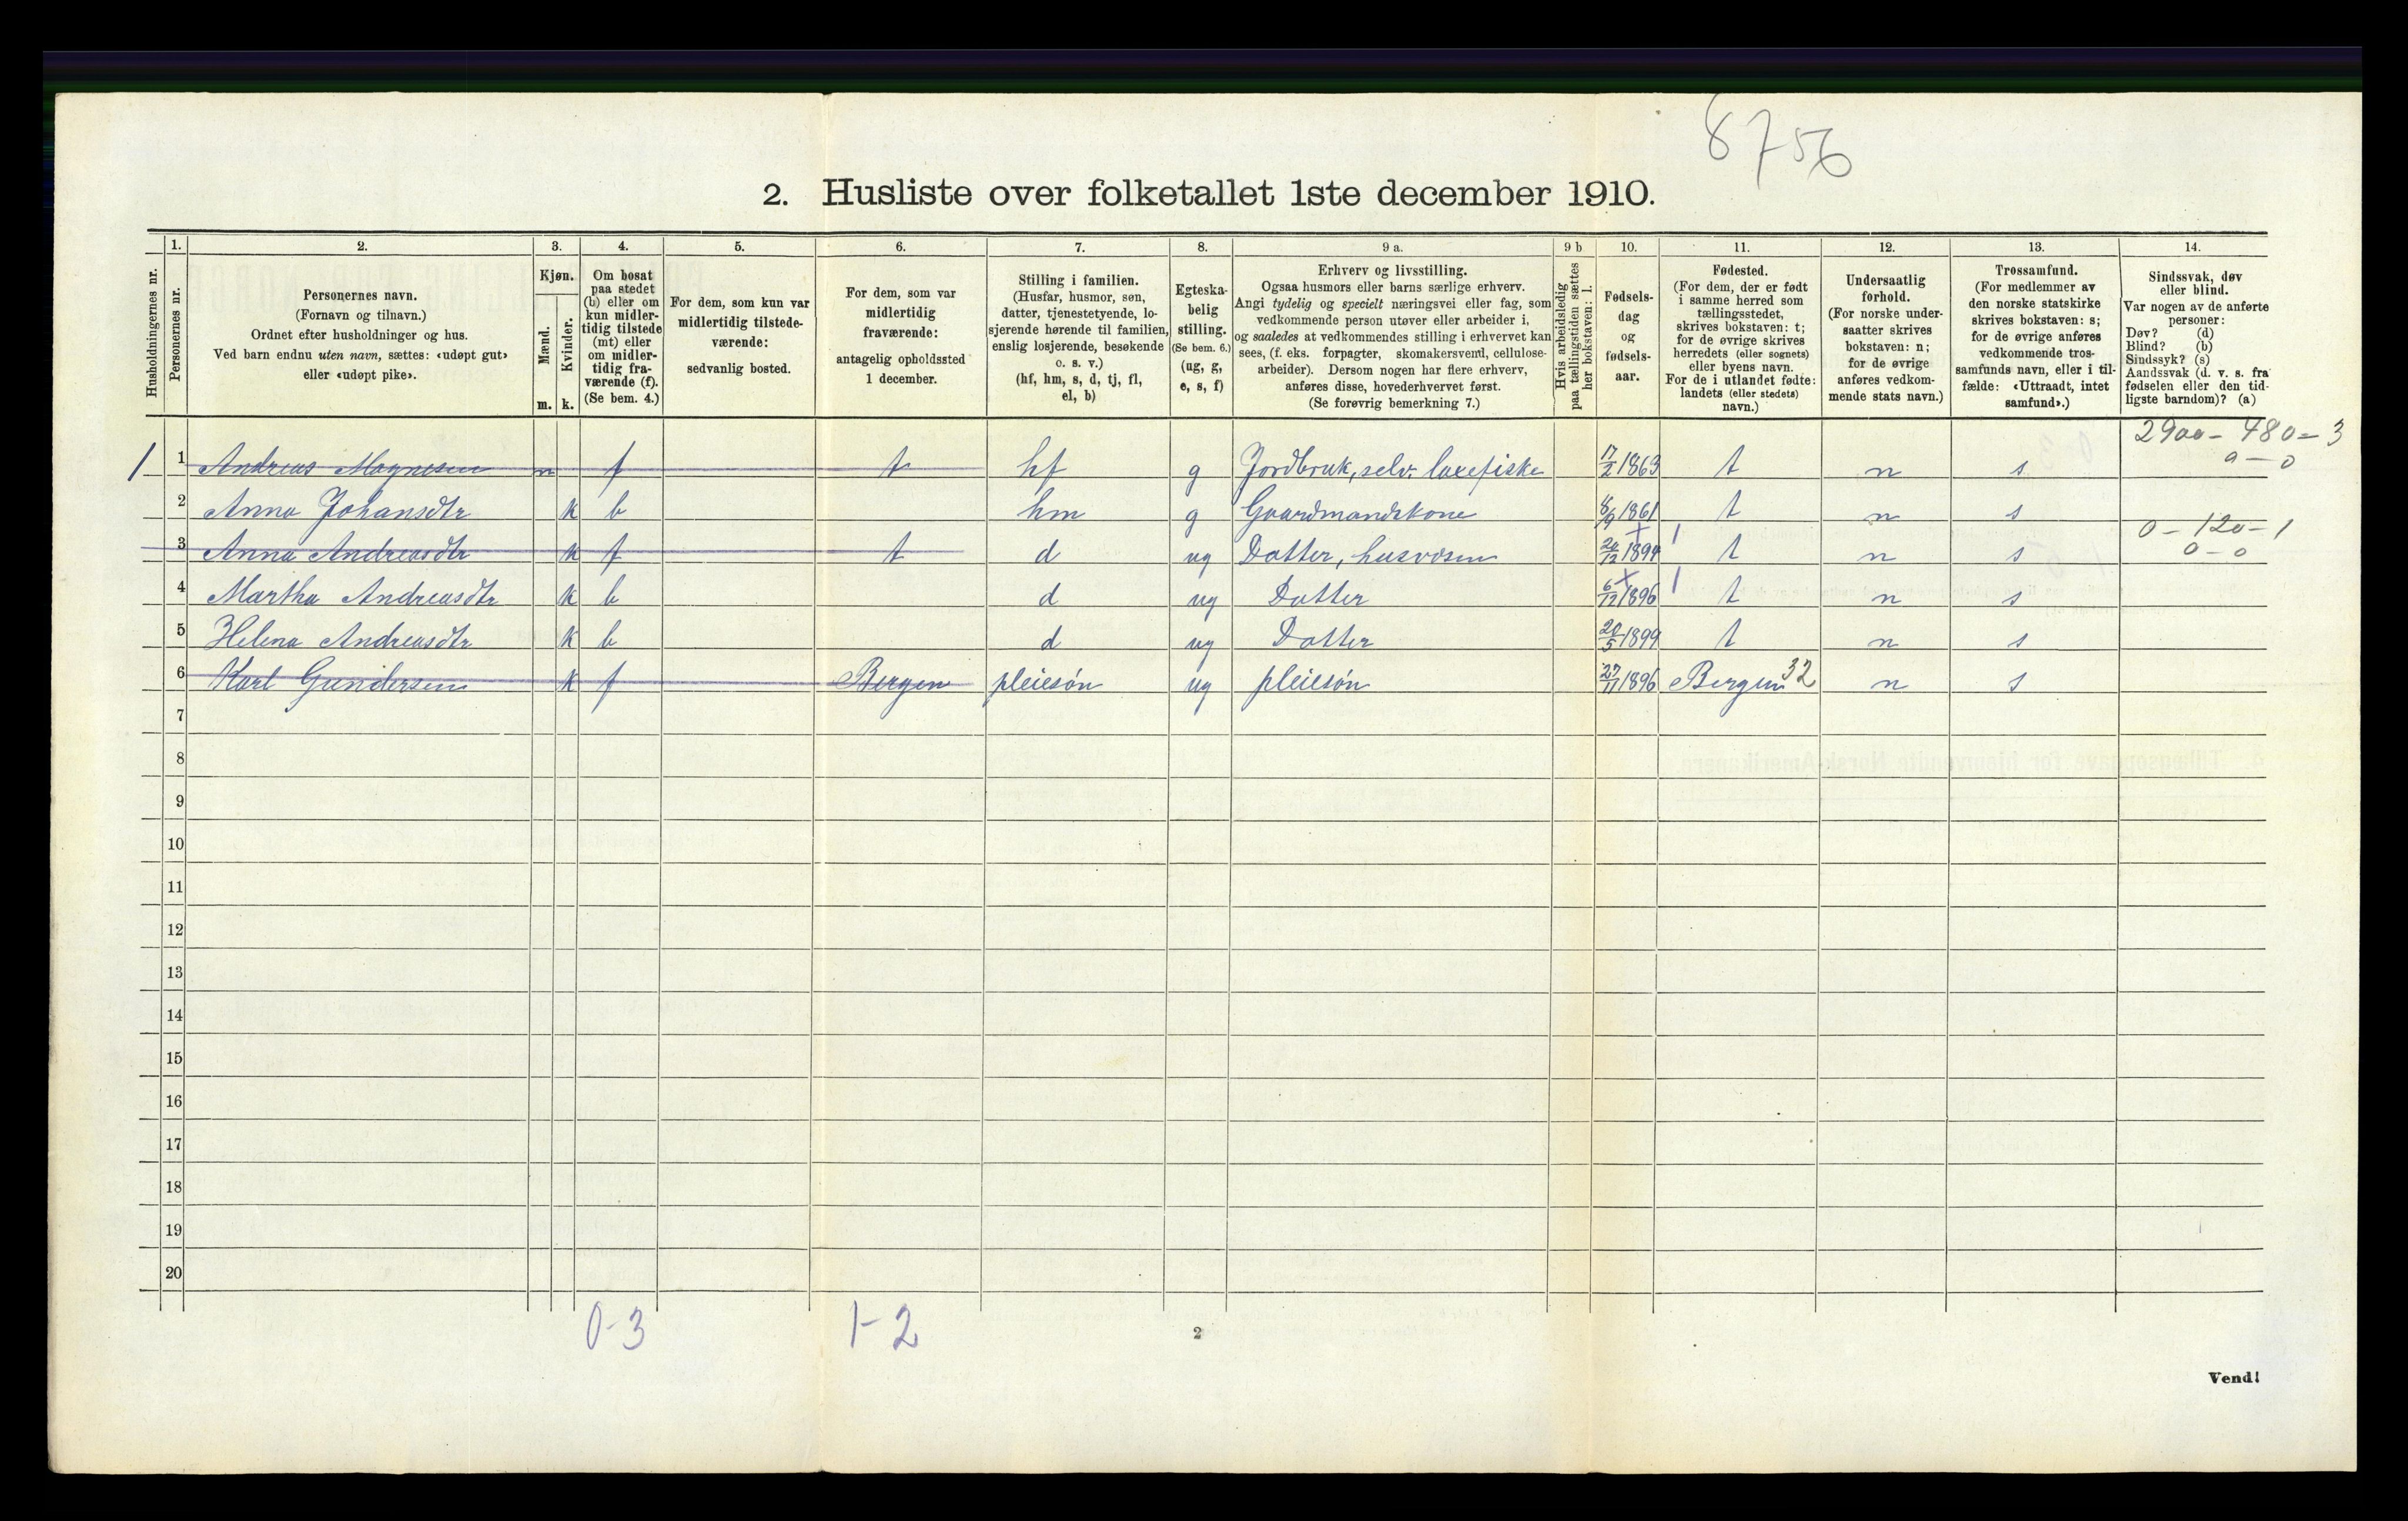 8756
2. Husliste over folketallet 1ste december 1910.
1. 2. 3. 4. 5. 6. 7. 8. 9 a. 9 b 10. 11. 12. 13. 14.
Husholdningernes nr.
Personernes nr.
Personernes navn.
(Fornavn og tilnavn.)
Ordnet efter husholdninger og hus.
Ved barn endnu uten navn, sættes: «udøpt gut»
eller «udøpt pike».
Kjøn.
Mænd.
Kvinder.
m. k.
Om bosat
paa stedet
(b) eller om
kun midler-
tidig tilstede
(mt) eller
om midler-
tidig fra-
værende (f).
(Se bem. 4.)
For dem, som kun var
midlertidig tilstede-
værende:
sedvanlig bosted.
For dem, som var
midlertidig
fraværende:
antagelig opholdssted
1 december.
Stilling i familien.
(Husfar, husmor, søn,
datter, tjenestetyende, lo-
sjerende hørende til familien,
enslig losjerende, besøkende
o. s. v.)
(hf, hm, s, d, tj, fl,
el, b)
Egteska-
belig
stilling.
(Se bem. 6.)
(ug, g,
e, s, f)
Erhverv og livsstilling.
Ogsaa husmors eller barns særlige erhverv.
Angi tydelig og specielt næringsvei eller fag, som
vedkommende person utøver eller arbeider i,
og saaledes at vedkommendes stilling i erhvervet kan
sees, (f. eks. forpagter, skomakersvend, cellulose-
arbeider). Dersom nogen har flere erhverv,
anføres disse, hovederhvervet først.
(Se forøvrig bemerkning 7.)
Hvis arbeidsledig
paa tællingstiden sættes
her bokstaven: l.
Fødsels-
dag
og
fødsels-
aar.
Fødested.
(For dem, der er født
i samme herred som
tællingsstedet,
skrives bokstaven: t;
for de øvrige skrives
herredets (eller sognets)
eller byens navn.
For de i utlandet fødte:
landets (eller stedets)
navn.)
Undersaatlig
forhold.
(For norske under-
saatter skrives
bokstaven: n;
for de øvrige
anføres vedkom-
mende stats navn.)
Trossamfund.
(For medlemmer av
den norske statskirke
skrives bokstaven: s;
for de øvrige anføres
vedkommende tros-
samfunds navn, eller i til-
fælde: «Uttraadt, intet
samfund».)
Sindssvak, døv
eller blind.
Var nogen av de anførte
personer:
Døv? (d)
Blind? (b)
Sindssyk? (s)
Aandssvak (d. v. s. fra
fødselen eller den tid-
ligste barndom)? (a)
2900 - 480 - 3
0 - 0
1 1 Andreas Magnesen m f t hf g Jordbruk, selv. laxefiske 17/2 1863 t n s
2 Anna Johansdtr k b hm g Gaardmandskone 8/9 1861 t n s
0 - 120 - 1
0 - 0
3 Anna Andreasdtr k f t d ug Datter, husvæsen 20/12 1894 t n s
4 Martha Andreasdtr k b d ug Datter 6/12 1896 t n s
5 Helena Andreasdtr k b d ug Datter 20/5 1899 t n s
6 Karl Gundersen k f Bergen pleiesøn ug pleiesøn 27/11 1896 Bergen 32 n s
7
8
9
10
11
12
13
14
15
16
17
18
19
20
0-3 1-2
2
Vend!